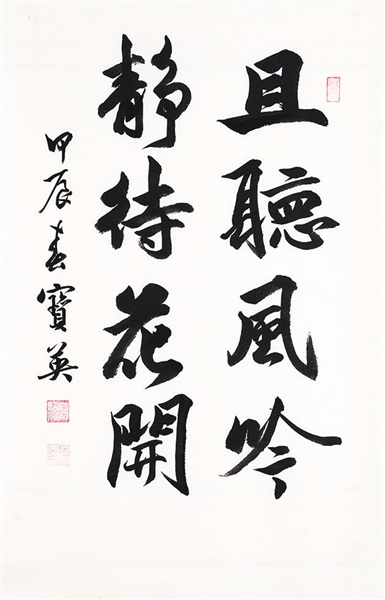 且聽風吟
靜待花開
甲辰春寶英